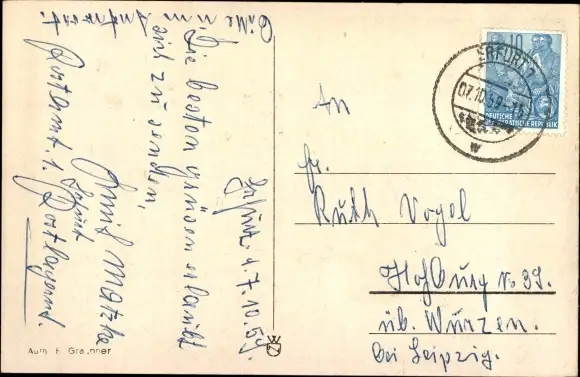 Erfurt. d. 7.10.59.
Die besten grüsen erlaubt
sich zu senden,
Erfurt
Postamt 1. Postlagernd.
Bitte um Antwort.
An
fr.
Ruth Vogel
Hohburg No 39.
üb. Wurzen.
bei Leipzig.
10
DEUTSCHE
DEMOKRATISCHE REPUBLIK
ERFURT 1
07.10.59
w
WZ
Aufn. F. Graupner